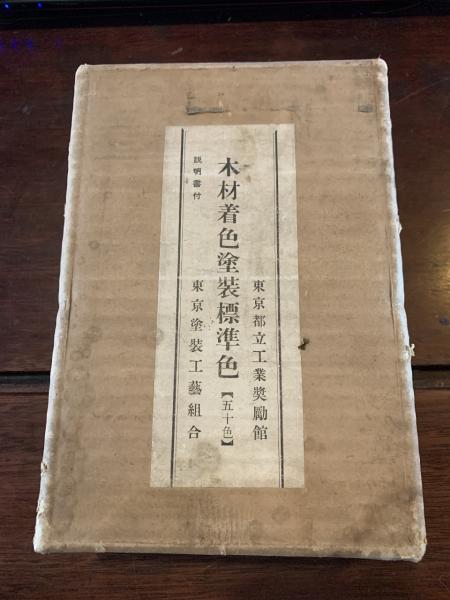 東京都立工業奬勵館
木材着色塗裝標準色【五十色】
說明書付
東京塗裝工藝組合